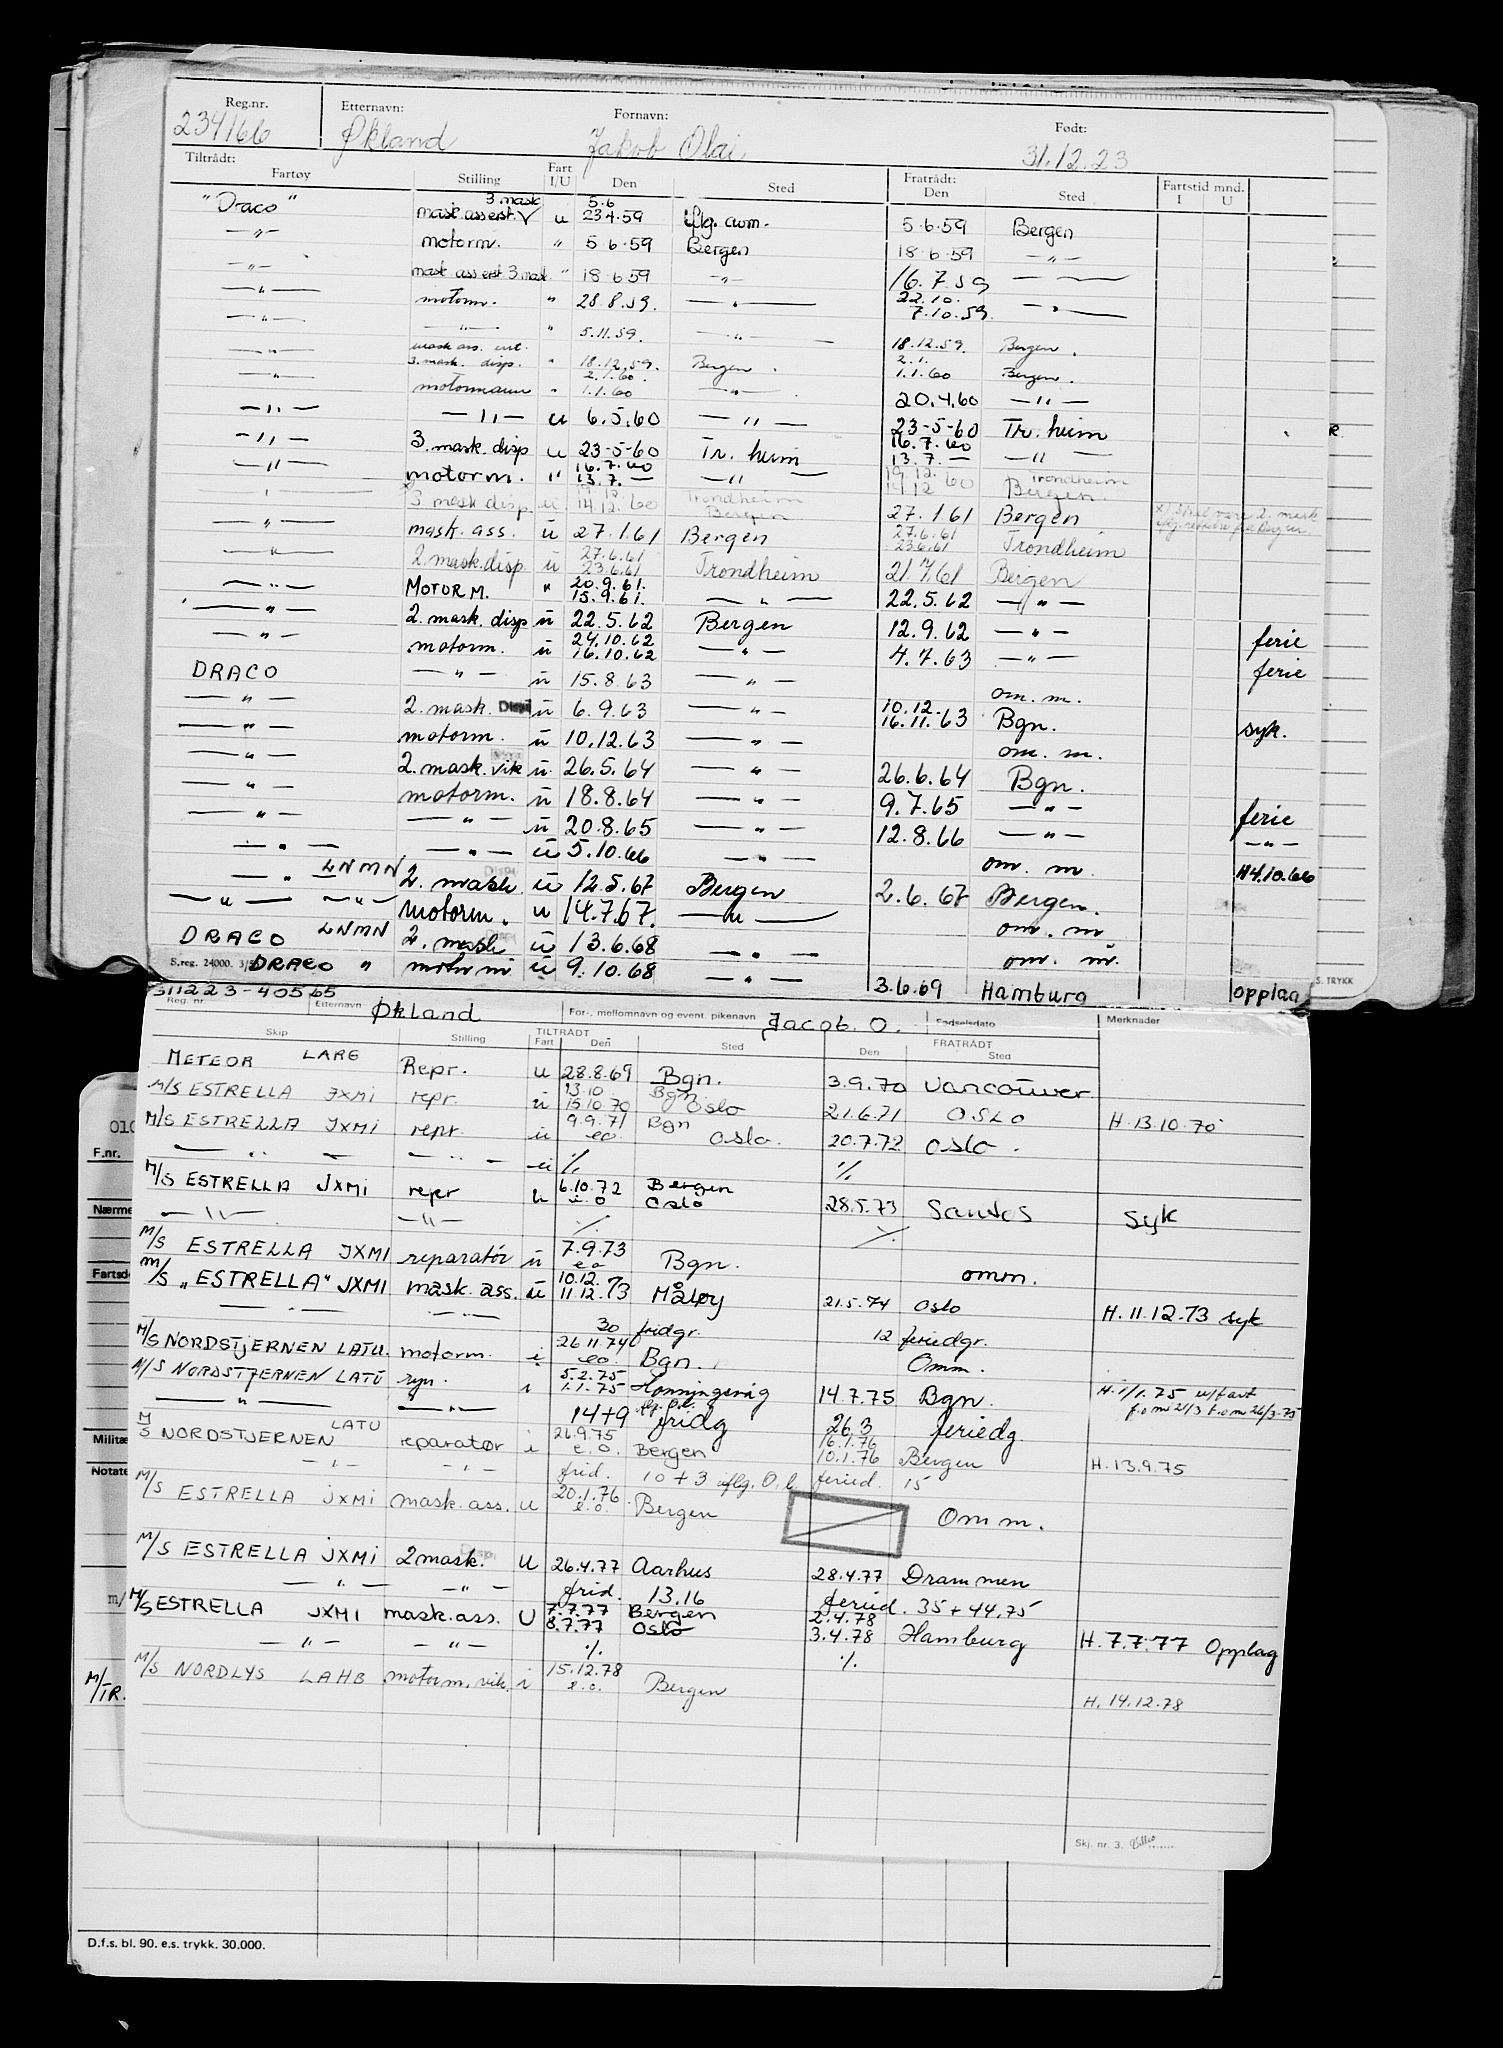 Reg.nr. Etternavn: Fornavn: Født:
234166 Økland Jakob Olai 31.12.23
Tiltrådt: Fratrådt: Fartstid mnd.
Fartøy Stilling Fart I/U Den Sted Den Sted I U
3. mask 5.6
"Draco" mask. ass erst. u 23.4.59 iflg. 5.6.59 Bergen
—"— motorm. " 5.6.59 Bergen 18.6.59 —"—
—"— mask ass erst 3. mask " 18.6.59 —"— 16.7.59 —"—
—"— motorm. " 28.8.59. —"— 22.10. 7.10.59. —"—
—"— —"— " 5.11.59. —"— 18.12.59. Bergen.
—"— mask ass. 3. mask. disp. " 18.12.59. 2.1.60. Bergen. 2.1. 1.1.60 Bergen.
—"— motormann " 1.1.60 —"— 20.4.60 —"—
—"— —"— u 6.5.60 —"— 23-5-60 Tr. heim
—"— 3. mask. disp u 23-5-60 Tr. heim 16.7.60 13.7. — —"—
—"— motorm. " 16.7.60 13.7. — —"— 19.12. 14.12 60 Trondheim Bergen.
3 mask disp. u 19.12. 14.12.60 Trondheim Bergen 27.1.61 Bergen x) Skal være 2. mask
—"— mask. ass. u 27.1.61 Bergen 27.6.61 23.6.61 Trondheim
—"— 2. mask. disp u 27.6.61 23.6.61 Trondheim 21.7.61 Bergen
—"— MOTORM. " 20.9.61. 15.9.61. —"— 22.5.62 —"—
—"— 2. mask. disp u 22.5.62 Bergen 12.9.62 —"— ferie
—"— motorm. u 24.10.62 16.10.62 —"— 4.7.63 —"— ferie
DRACO —"— u 15.8.63 —"— om. m.
—"— 2. mask. Disp u 6.9.63 —"— 10.12. 16.11.63 Bgn. syk.
—"— motorm. u 10.12.63 —"— om. m.
—"— 2. mask. vik u. 26.5.64 —"— 26.6.64 Bgn.
—"— motorm. u 18.8.64 —"— 9.7.65 —"— ferie
—"— —"— u 20.8.65 —"— 12.8.66 —"— —"—
—"— —"— u 5.10.66 —"— om. m. H4.10.66
—"— LNMN 2. mask u 12.5.67 Bergen 2.6.67 Bergen.
—"— —"— motorm. u 14.7.67. —"— om. m
DRACO LNMN 2. mask u 13.6.68 —"— om. m.
S.reg. 24000. DRACO " motorm u 9.10.68 —"— 3.6.69 Hamburg opplag
S. TRYKK
311223-40565 Økland Jacob. O.
Reg. nr. Etternavn For-, mellomnavn og event. pikenavn Fødselsdato Merknader
TILTRÅDT FRATRÅDT
Skip Stilling Fart Den Sted Den Sted
METEOR LARG Repr. u 28.8.69 Bgn. 3.9.70 Vancouver.
M/S ESTRELLA JXMI repr. u 13.10 15.10.70 Bgn. Oslo 21.6.71 OSLO H. 13.10.70
M/S ESTRELLA JXMI repr. u 9.9.71 eo. Bgn Oslo. 20.7.72 Oslo.
—"— —"— u % %
M/S ESTRELLA JXMI repr u 6.10.72 e.o Bergen Oslo 28.5.73 Santos Syk
—"— —"— % %
M/S ESTRELLA JXMI reparatør u 7.9.73 eo Bgn. omm.
M/S "ESTRELLA" JXMI mask. ass. u 10.12. 11.12.73 Måløy 21.5.74 Oslo H. 11.12.73 syk
—"— —"— 30 fridgr. 12 feriedgr.
M/S NORDSTJERNEN LATU. motorm. i 26.11.74 eo. Bgn. Omm.
M/S NORDSTJERNEN LATU i 5.2.75 1.1.75 Honningsvåg 14.7.75 Bgn. H. 1/1.75 u/fart
—"— —"— 14+9 fridg 26,3 feriedg. f.o.m 21/3 t.o.m 26/3-75
M/S NORDSTJERNEN LATU reparatør i 26.9.75 e.o. Bergen 16.1.76 10.1.76 Bergen H. 13.9.75
—"— —"— frid. 10 + 3 iflg. O.l. feried. 15
M/S ESTRELLA JXMI mask. ass. u 20.1.76 e.o. Bergen Omm.
M/S ESTRELLA JXMI 2 mask. u 26.4.77 Aarhus 28.4.77 Drammen
—"— —"— frid. 13.16 feried. 35 + 44,75
M/S ESTRELLA JXMI mask. ass. U 7.7.77 8.7.77 Bergen Oslo 2.4.78 3.4.78 Hamburg H. 7.7.77 Opplag
—"— —"— % %
M/S NORDLYS LAHB motorm. vik. i 15.12.78 e.o. Bergen H. 14.12.78
Skj. nr. 3.
010
F.nr.
Nærme
Fartsde
Militæ
Notate
m/
M/TR.
D.f.s. bl. 90. e.s. trykk. 30.000.